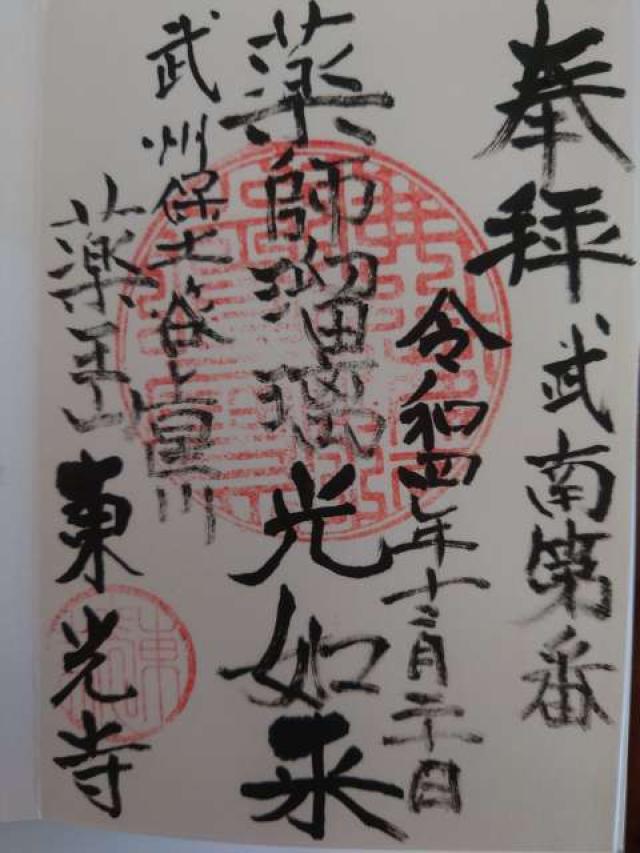 奉拝
武南第番
令和四年十二月二十日
薬師瑠璃光如来
武州保土ヶ谷上星川
薬王山東光寺